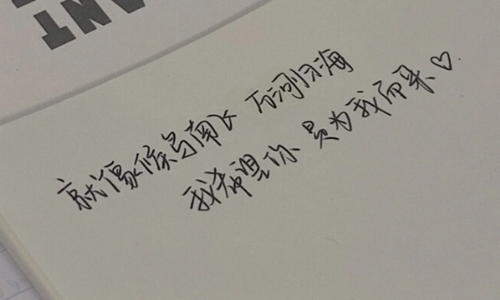 ANT
就像候鸟南飞 百川归海
我希望你 是为我而来♡